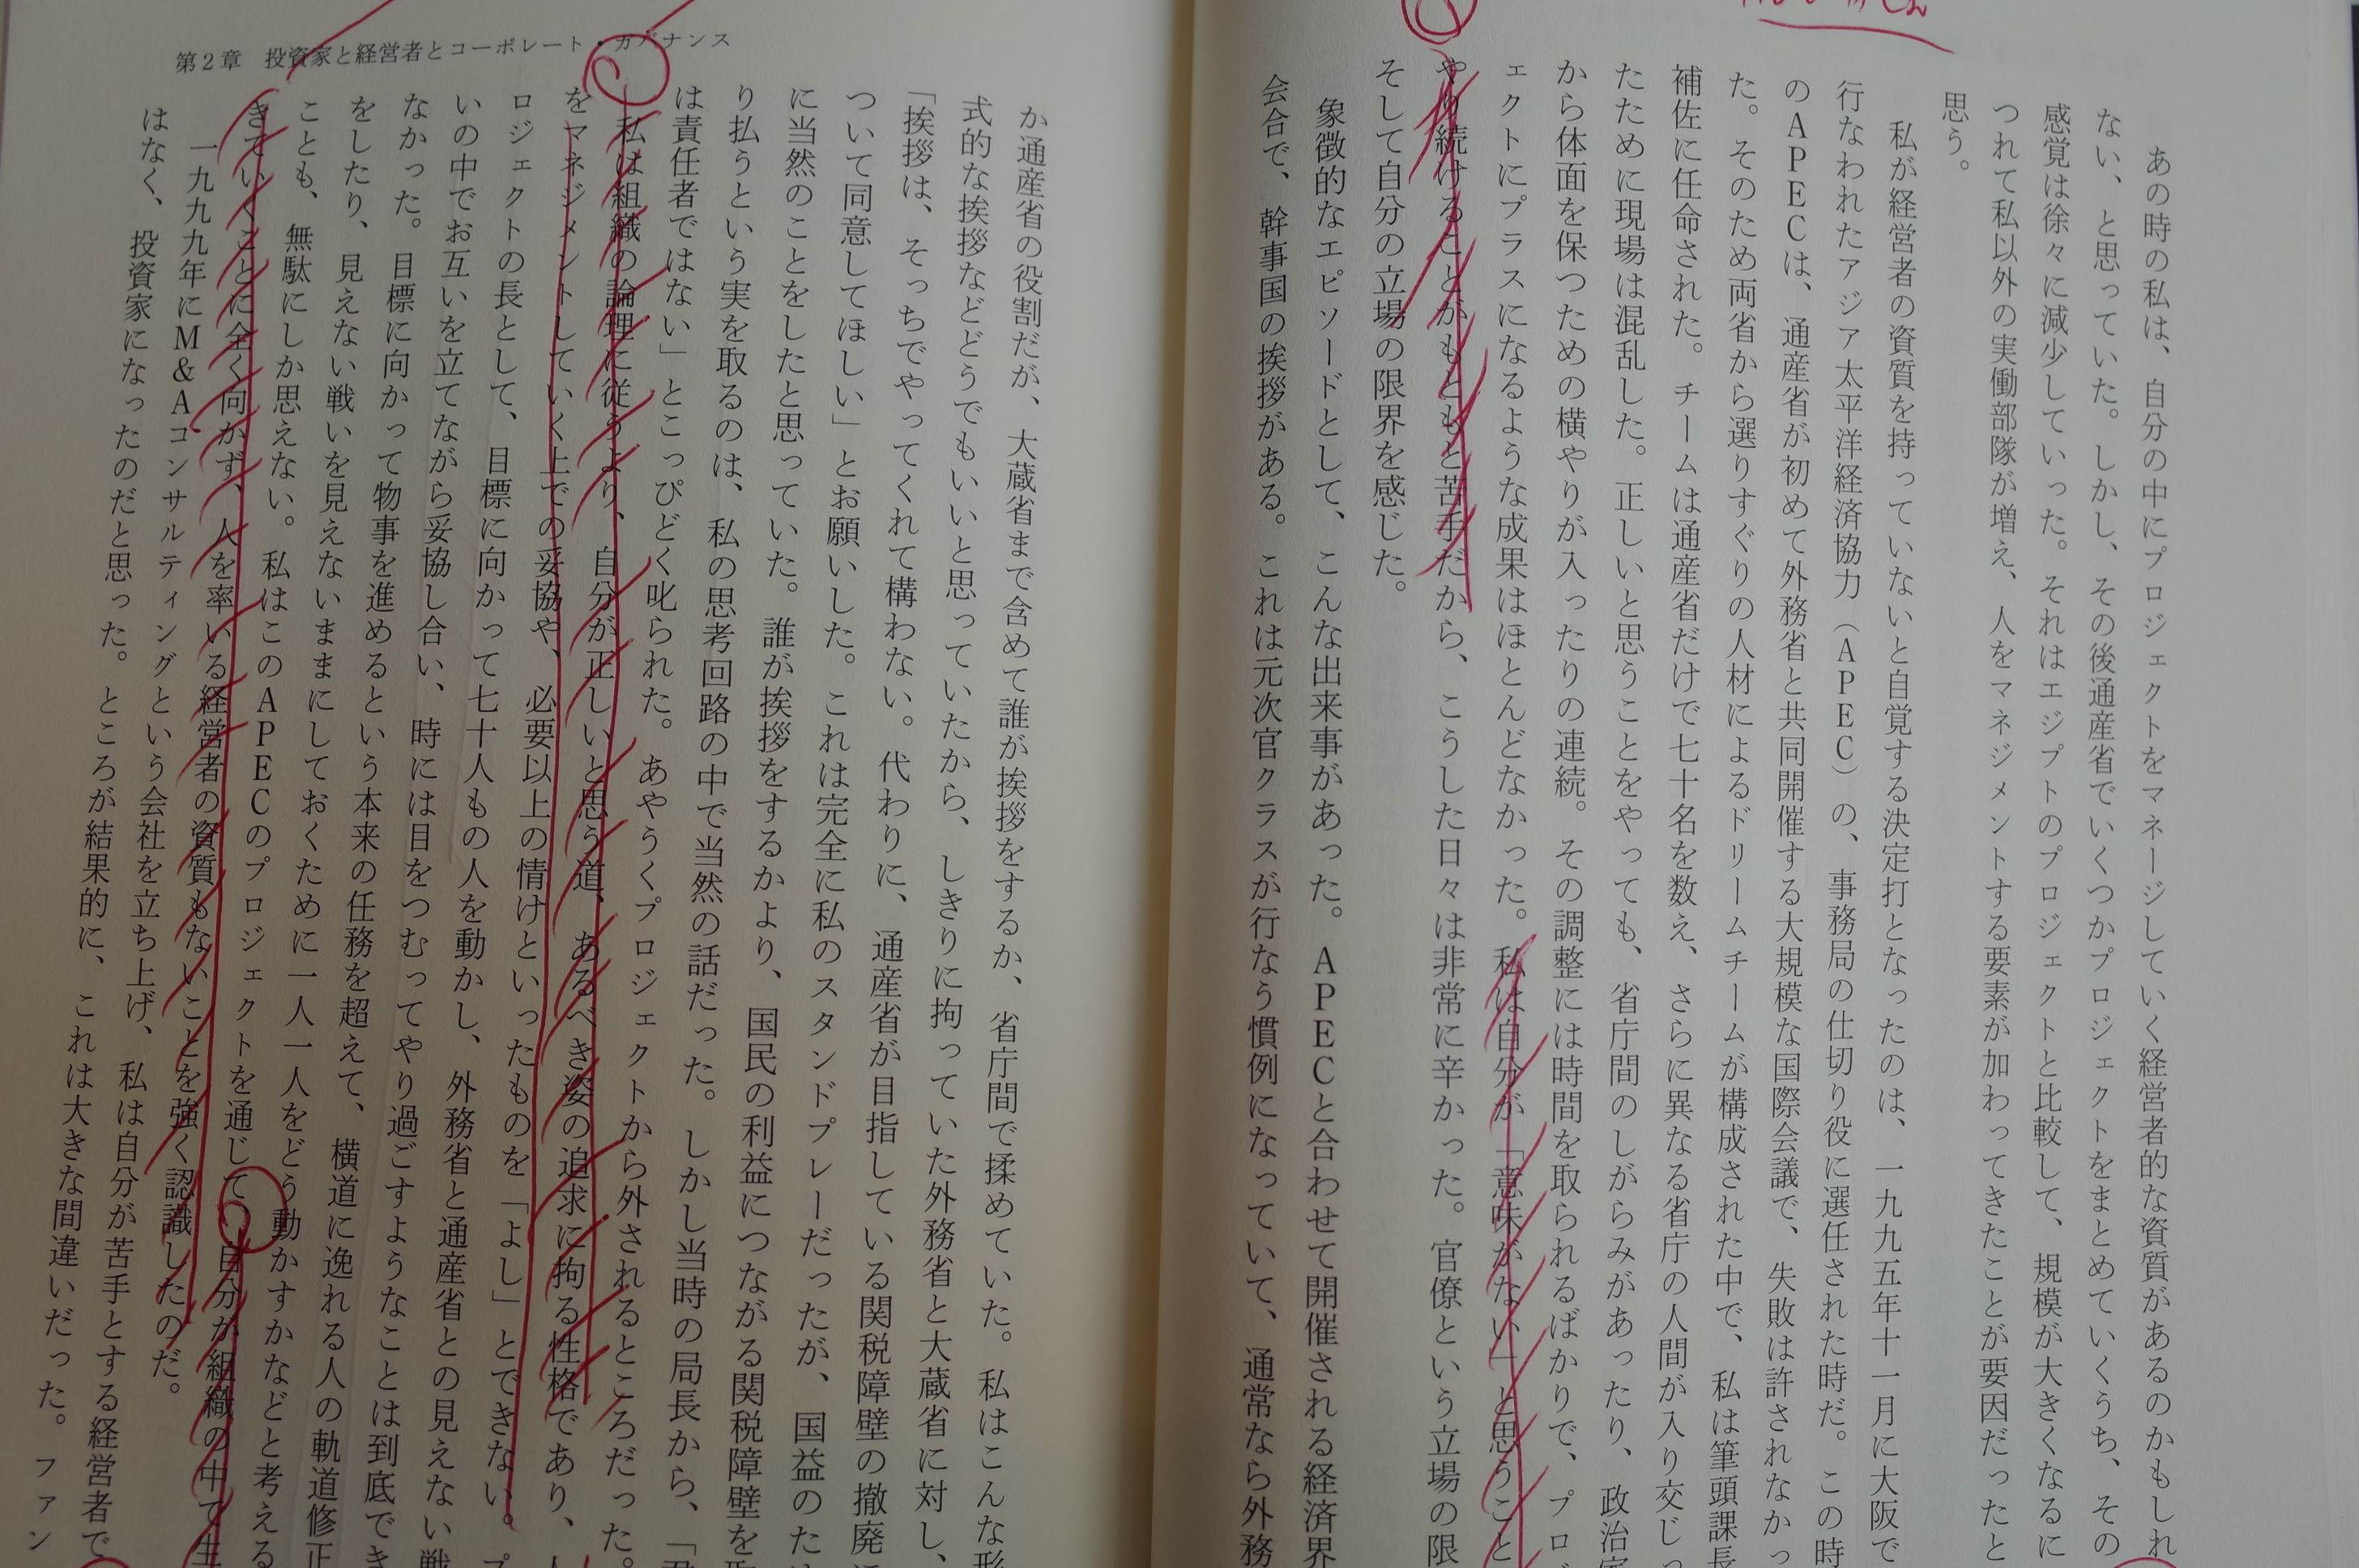 あの時の私は、自分の中にプロジェクトをマネージしていく経営者的な資質があるのかもしれ
ない、と思っていた。しかし、その後通産省でいくつかプロジェクトをまとめていくうち、その
感覚は徐々に減少していった。それはエジプトのプロジェクトと比較して、規模が大きくなるに
つれて私以外の実働部隊が増え、人をマネジメントする要素が加わってきたことが要因だったと
思う。
私が経営者の資質を持っていないと自覚する決定打となったのは、一九九五年十一月に大阪で
行なわれたアジア太平洋経済協力（APEC）の、事務局の仕切り役に選任された時だ。この時
のAPECは、通産省が初めて外務省と共同開催する大規模な国際会議で、失敗は許されなかっ
た。そのため両省から選りすぐりの人材によるドリームチームが構成された中で、私は筆頭課長
補佐に任命された。チームは通産省だけで七十名を数え、さらに異なる省庁の人間が入り交じっ
たために現場は混乱した。正しいと思うことをやっても、省庁間のしがらみがあったり、政治家
から体面を保つための横やりが入ったりの連続。その調整には時間を取られるばかりで、プロジ
ェクトにプラスになるような成果はほとんどなかった。私は自分が「意味がない」と思うこと
やり続けることがもともと苦手だから、こうした日々は非常に辛かった。官僚という立場の限
そして自分の立場の限界を感じた。
象徴的なエピソードとして、こんな出来事があった。APECと合わせて開催される経済界
会合で、幹事国の挨拶がある。これは元次官クラスが行なう慣例になっていて、通常なら外務
第2章 投資家と経営者とコーポレート・ガバナンス
か通産省の役割だが、大蔵省まで含めて誰が挨拶をするか、省庁間で揉めていた。私はこんな形
式的な挨拶などどうでもいいと思っていたから、しきりに拘っていた外務省と大蔵省に対し、
「挨拶は、そっちでやってくれて構わない。代わりに、通産省が目指している関税障壁の撤廃に
ついて同意してほしい」とお願いした。これは完全に私のスタンドプレーだったが、国益のため
に当然のことをしたと思っていた。誰が挨拶をするかより、国民の利益につながる関税障壁を取
り払うという実を取るのは、私の思考回路の中で当然の話だった。しかし当時の局長から、「君
は責任者ではない」とこっぴどく叱られた。あやうくプロジェクトから外されるところだった。
私は組織の論理に従うより、自分が正しいと思う道、あるべき姿の追求に拘る性格であり、人
をマネジメントしていく上での妥協や、必要以上の情けといったものを「よし」とできない。プ
ロジェクトの長として、目標に向かって七十人もの人を動かし、外務省と通産省との見えない戦
いの中でお互いを立てながら妥協し合い、時には目をつむってやり過ごすようなことは到底でき
なかった。目標に向かって物事を進めるという本来の任務を超えて、横道に逸れる人の軌道修正
をしたり、見えない戦いを見えないままにしておくために一人一人をどう動かすかなどと考える
ことも、無駄にしか思えない。私はこのAPECのプロジェクトを通じて、自分が組織の中で生
きていくことに全く向かず、人を率いる経営者の資質もないことを強く認識したのだ。
一九九九年にM&Aコンサルティングという会社を立ち上げ、私は自分が苦手とする経営者で
はなく、投資家になったのだと思った。ところが結果的に、これは大きな間違いだった。ファン